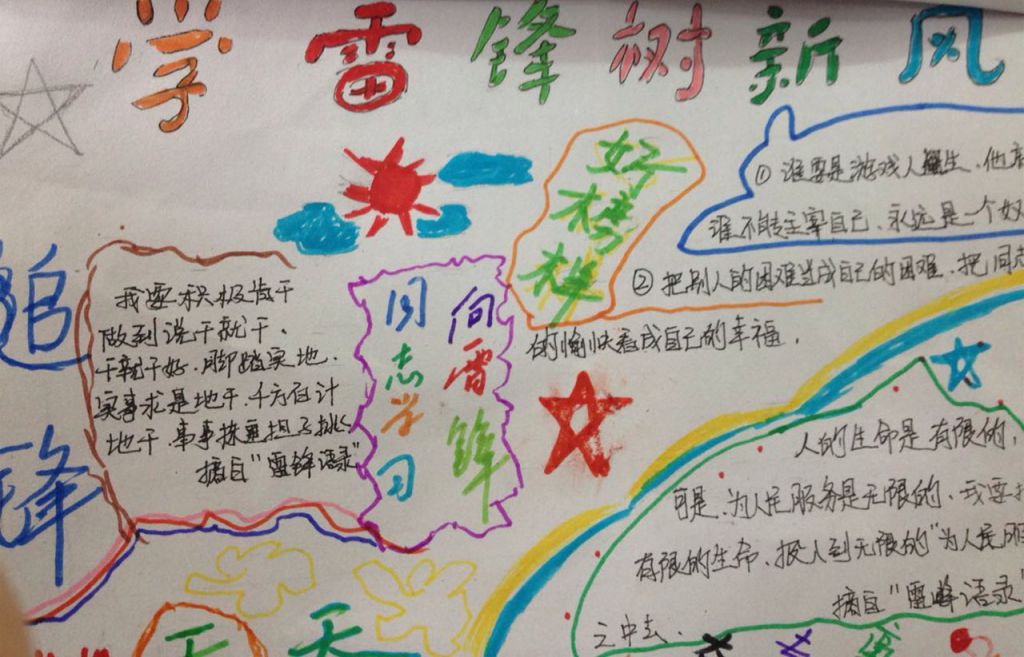 学雷锋树新风
好榜样
①谁要是游戏人生、他
谁不能主宰自己、永远是一个奴
②把别人的困难当成自己的困难、把同志
的愉快看成自己的幸福。
追
锋
我要积极肯干
做到说干就干、
干就干好、脚踏实地、
实事求是地干、千方百计
地干事事抹重担子挑
摘自“雷锋语录”
向雷锋
同志学习
人的生命是有限的，
可是、为人民服务是无限的、我要
有限的生命、投入到无限的“为人民服
之中去、
摘自“雷峰语录”
天